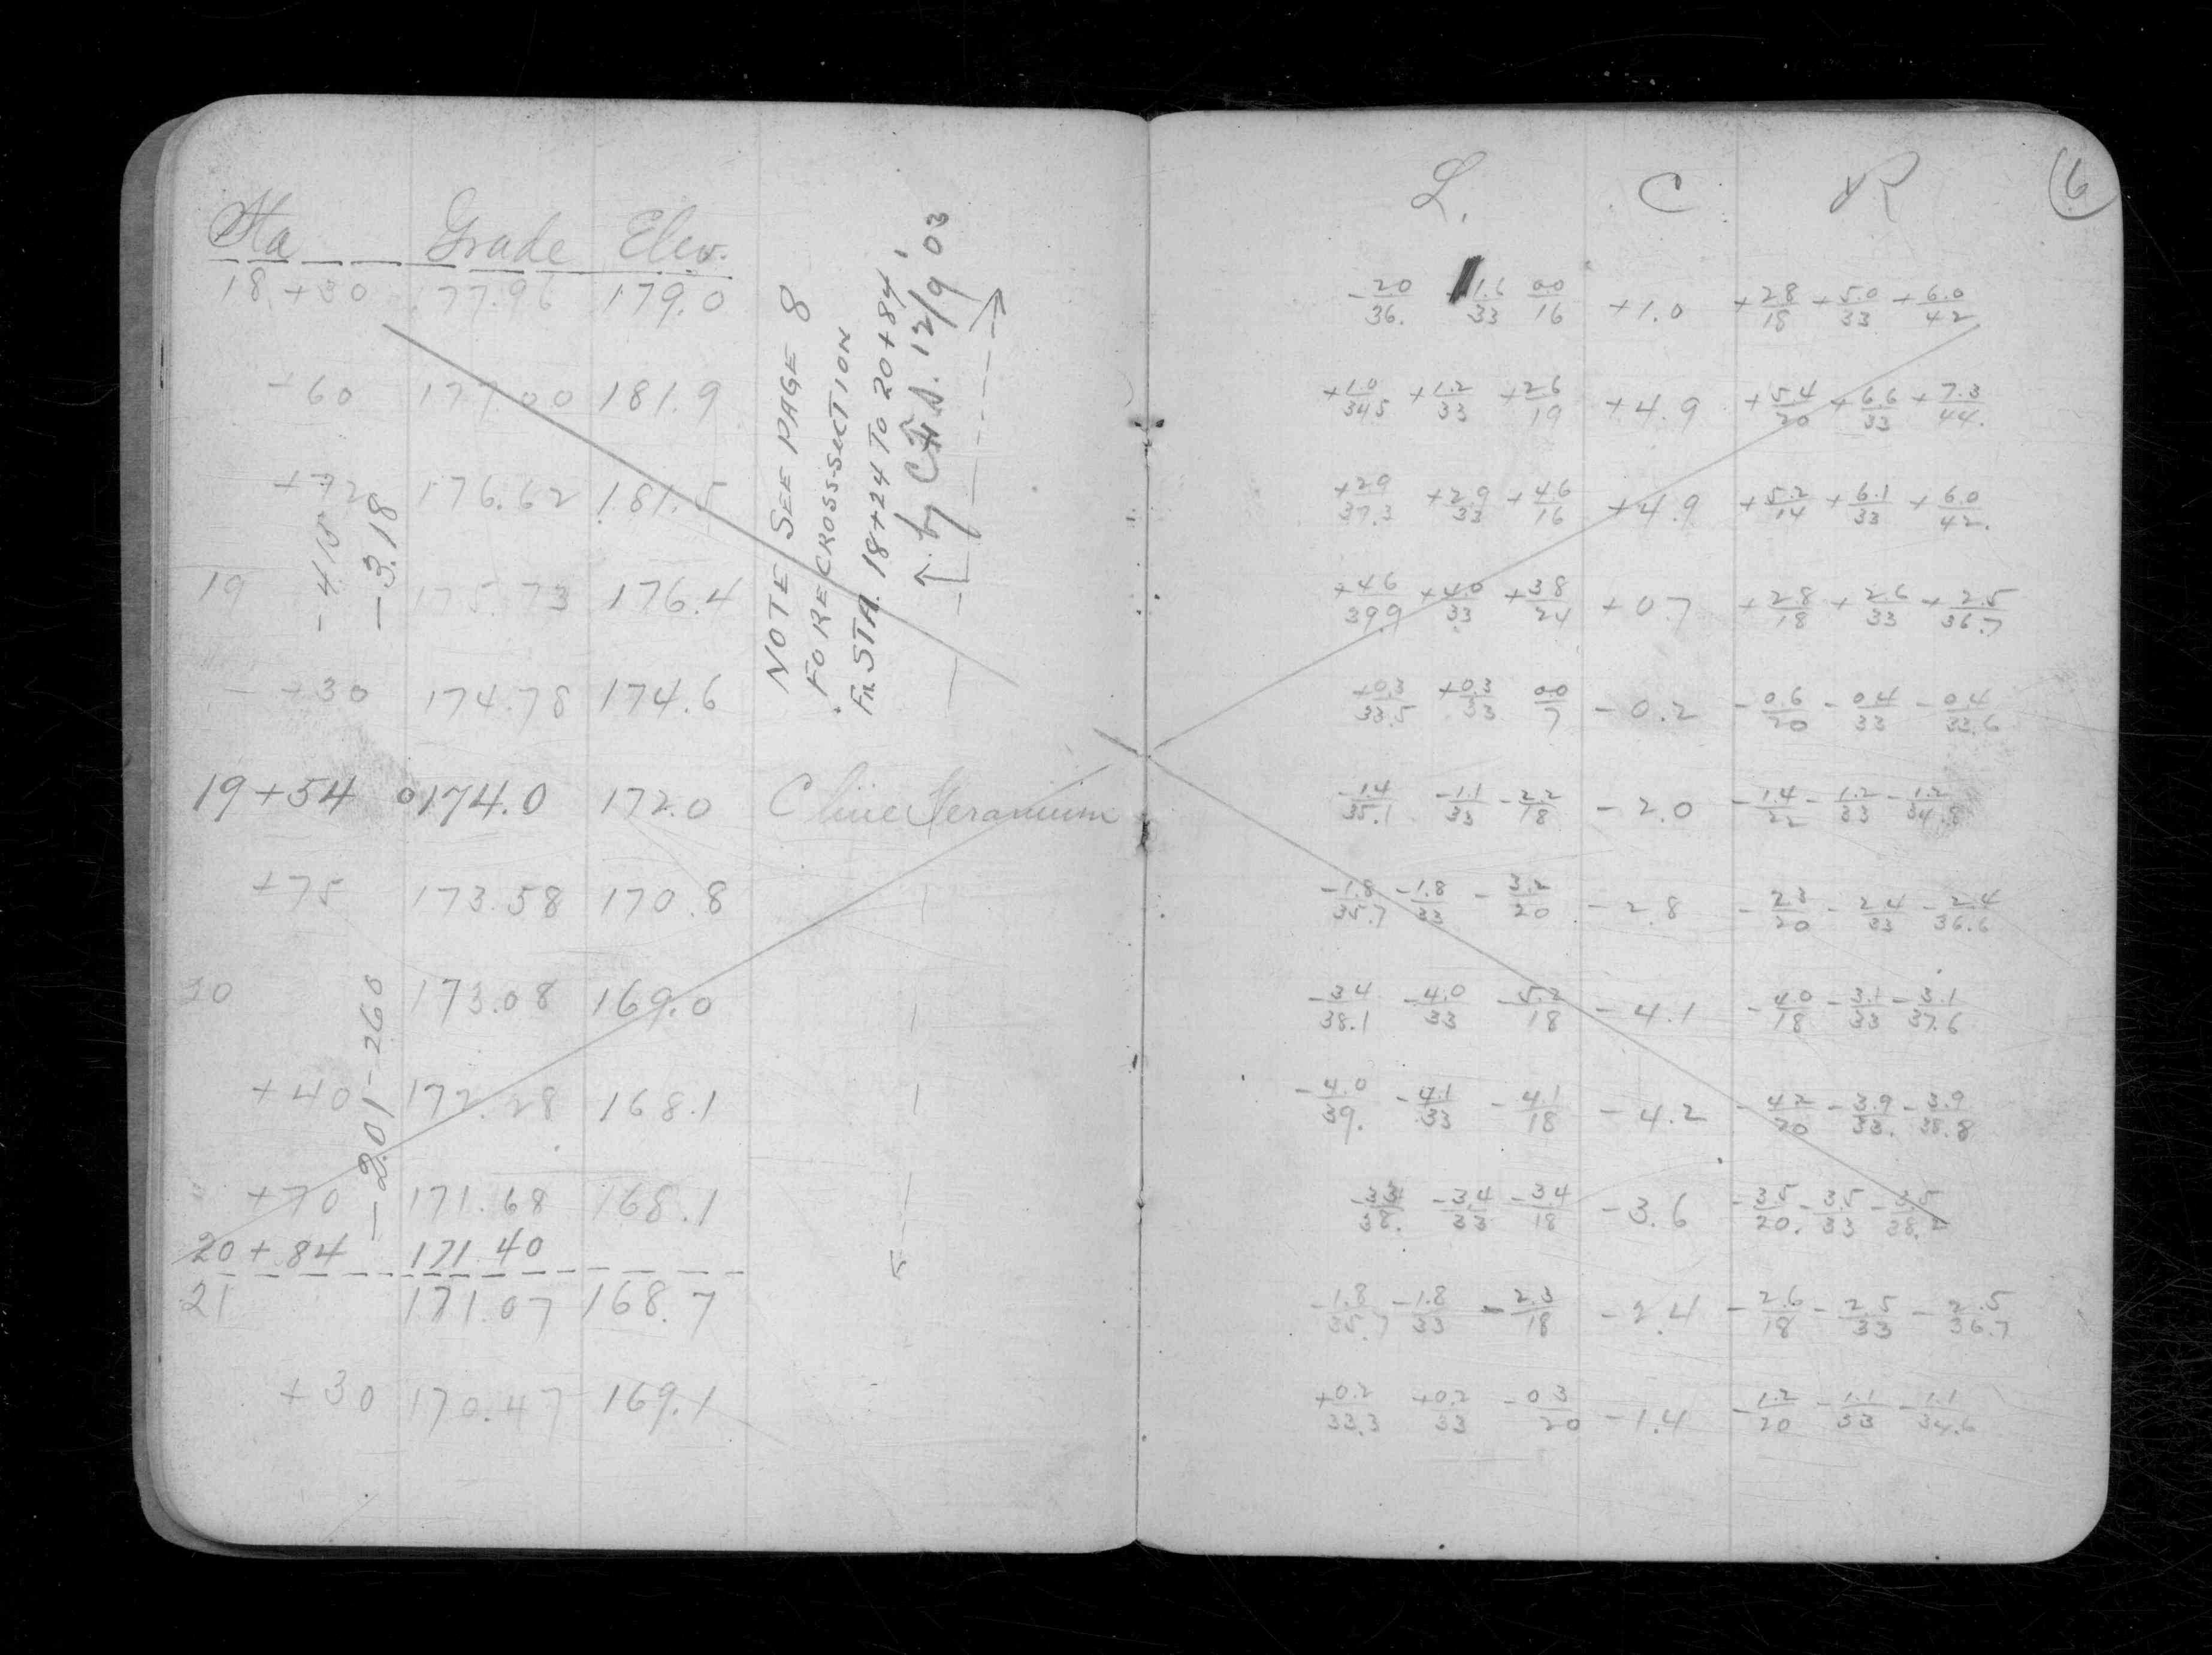 Sta Grade Elev.
18+30 177.96 179.0
+60 177.00 181.9
+72 176.62 181.5
19 175.73 176.4
+30 174.78 174.6
19+54 174.0 172.0 C line Geranium
+75 173.58 170.8
20 173.08 169.0
+40 172.28 168.1
+70 171.68 168.1
20+84 171.40
21 171.07 168.7
+30 170.47 169.1
-3.18
-2.01-2.60
NOTE SEE PAGE 8
FOR RECROSS-SECTION
Fr. STA. 18+24 TO 20+84'
by 12/9 03
L. C R 6
-20/36. -1.6/33 00/16 +1.0 +28/18 +5.0/33 +6.0/42
+10/34.5 +1.2/33 +26/19 +4.9 +5.4/20 +6.6/33 +7.3/44.
+29/37.3 +2.9/33 +46/16 +4.9 +5.2/14 +6.1/33 +60/42.
+46/39.9 +4.0/33 +38/24 +0.7 +28/18 +2.6/33 +2.5/36.7
+0.3/33.5 +0.3/33 00/7 -0.2 -0.6/20 -0.4/33 -0.4/33.6
-1.4/35.1 -1.1/33 -2.2/18 -2.0 -1.4/22 -1.2/33 -1.2/34.8
-1.8/35.7 -1.8/33 -3.2/20 -2.8 -23/20 -24/33 -2.4/36.6
-34/38.1 -4.0/33 -5.2/18 -4.1 -4.0/18 -3.1/33 -3.1/37.6
-4.0/39. -4.1/33 -4.1/18 -4.2 -4.2/20 -3.9/33. -3.9/38.8
-3.4/33 -3.4/18 -3.6 -3.5/20. -3.5/33
-1.8/35.7 -1.8/33 -2.3/18 -2.4 -2.6/18 -2.5/33 -2.5/36.7
+0.2/33.3 +0.2/33 -03/20 -1.4 -1.2/20 -1.1/33 -1.1/34.6